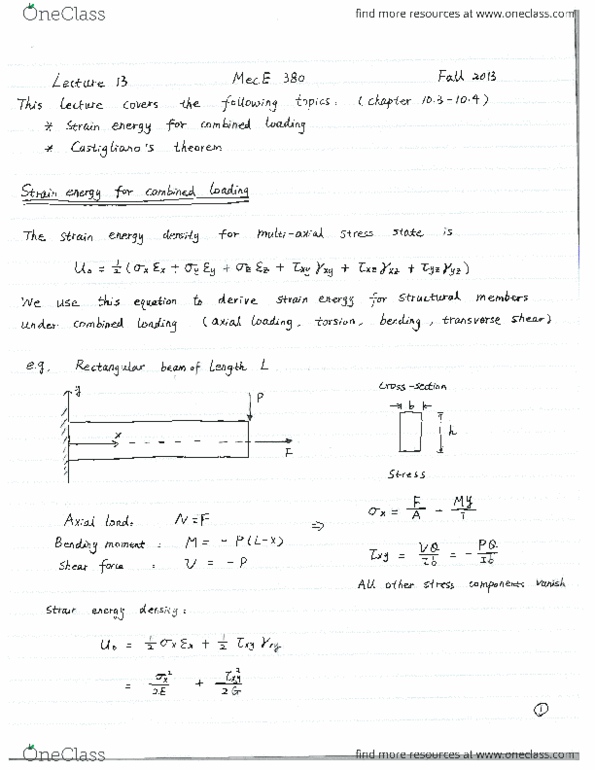 OneClass
find more resources at www.oneclass.com
Lecture 13 Mec.E 380 Fall 2013
This lecture covers the following topics: (chapter 10.3-10.4)
* Strain energy for combined loading
* Castigliano's theorem
Strain energy for combined loading
The strain energy density for multi-axial stress state is
U₀ = ½ (σx εx + σy εy + σz εz + τxy γxy + τxz γxz + τyz γyz)
We use this equation to derive strain energy for structural members
under combined loading (axial loading, torsion, bending, transverse shear)
e.g. Rectangular beam of length L
y
P
x
F
Cross-section
b
h
Stress
Axial load: N = F
Bending moment: M = - P(L-x)
Shear force: V = - P
⇒
σx = F/A - My/I
τxy = VQ/Ib = - PQ/Ib
All other stress components vanish
Strain energy density:
U₀ = ½ σx εx + ½ τxy γxy
= σx²/2E + τxy²/2G
①
OneClass
find more resources at www.oneclass.com